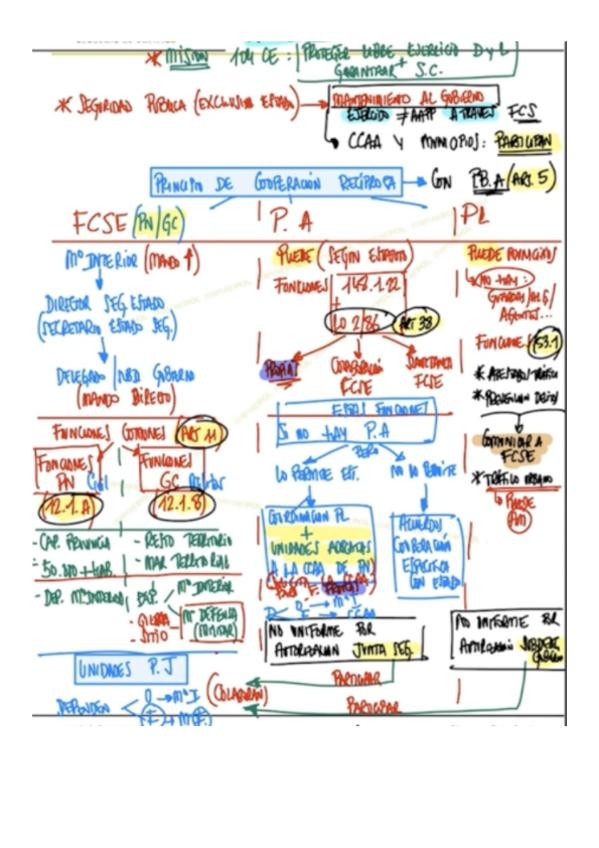 * MISION 104 CE: PROTEGER LIBRE EJERCICIO D y L
+
GARANTIZAR S.C.
* SEGURIDAD PUBLICA (EXCLUSIVA ESTADO) → MANTENIMIENTO AL GOBIERNO
EJERCIDO ≠ AAPP A TRAVES FCS
CCAA Y MUNICIPIOS: PARTICIPAN
PRINCIPIO DE COOPERACIÓN RECÍPROCA → CON (ART. 5)
FCSE (PN/GC)
Mº INTERIOR (MANDO ↑)
DIRECTOR SEG. ESTADO
(SECRETARIO ESTADO SEG.)
DELEGADO GOBIERNO
(MANDO DIRECTO)
FUNCIONES COMUNES ART 11
FUNCIONES
PN Civil
12.1.A
FUNCIONES
GC Militar
12.1.B
- CAP. PROVINCIA
- 50.000 + HAB.
- DEP. Mº INTERIOR
- RESTO TERRITORIO
- MAR TERRITORIAL
- DEP. Mº INTERIOR
- GUERRA
- SITIO
Mº DEFENSA
(MILITAR)
UNIDADES P.J
DEPENDEN
O → Mº I
F → 
(COLABORAN)
P. A
PUEDE (SEGÚN ESTATUTO)
FUNCIONES
+
LO 2/86 ART 38
PROPIAS
COLABORACIÓN
FCSE
FCSE
ESTAS FUNCIONES
SI NO HAY P.A
PERO
LO PERMITE EST.
NO LO PERMITE
COORDINACION PL
+
UNIDADES ADSCRITAS
A LA CCAA DE PN
ACUERDOS
COOPERACIÓN
ESPECIFICA
CON ESTADO
NO UNIFORME POR
AUTORIZACIÓN JUNTA SEG.
PARTICIPAR
PARTICIPAR
PL
PUEDE MUNICIPIOS
* NO HAY:
AGENTES...
FUNCIONES 53.1
* ATESTADOS TRÁFICO
* PREVENCION DELITOS
COMUNICAR A
FCSE
* TRÁFICO URBANO
↳ PUEDE
NO UNIFORME POR
AUTORIZACIÓN